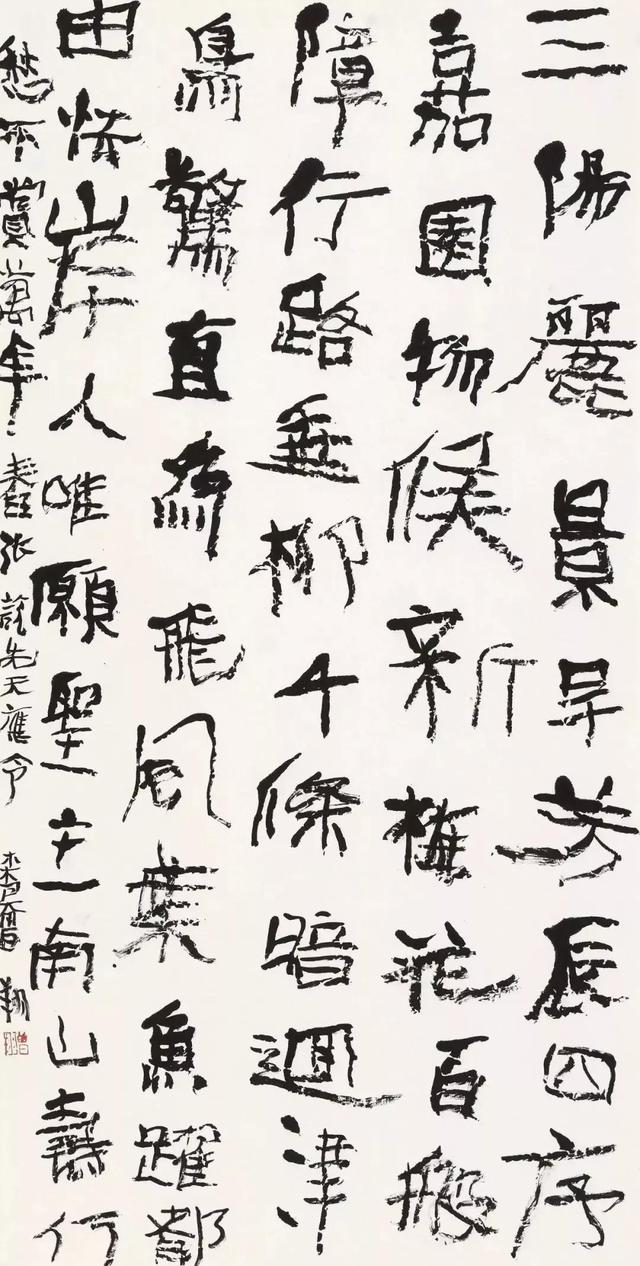 三陽麗景早芳辰四序
嘉園物候新梅花百般
障行路垂柳千條暗迴津
鳥驚直為飛風葉魚躍都
由怯岸人唯願聖主南山壽何
愁不賞萬年春張説先天應令
曾翔